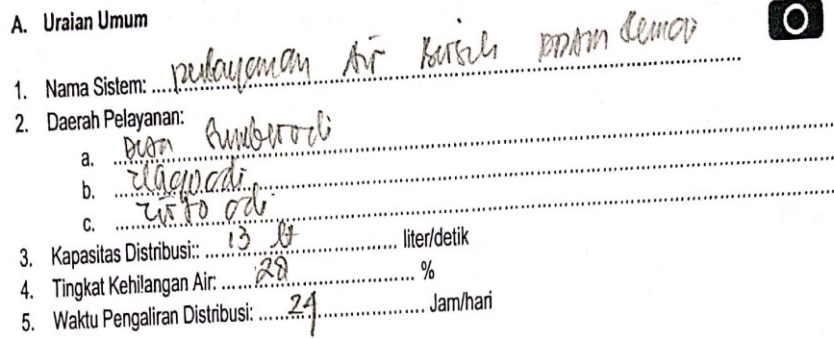 A. Uraian Umum
1. Nama Sistem: pelayanan Air Bersih PDAM
2. Daerah Pelayanan:
a. Desa Sumberadi
b. Tlagoadi
c. Tirto adi
3. Kapasitas Distribusi:: 13 lt liter/detik
4. Tingkat Kehilangan Air: 28 %
5. Waktu Pengaliran Distribusi: 24 Jam/hari